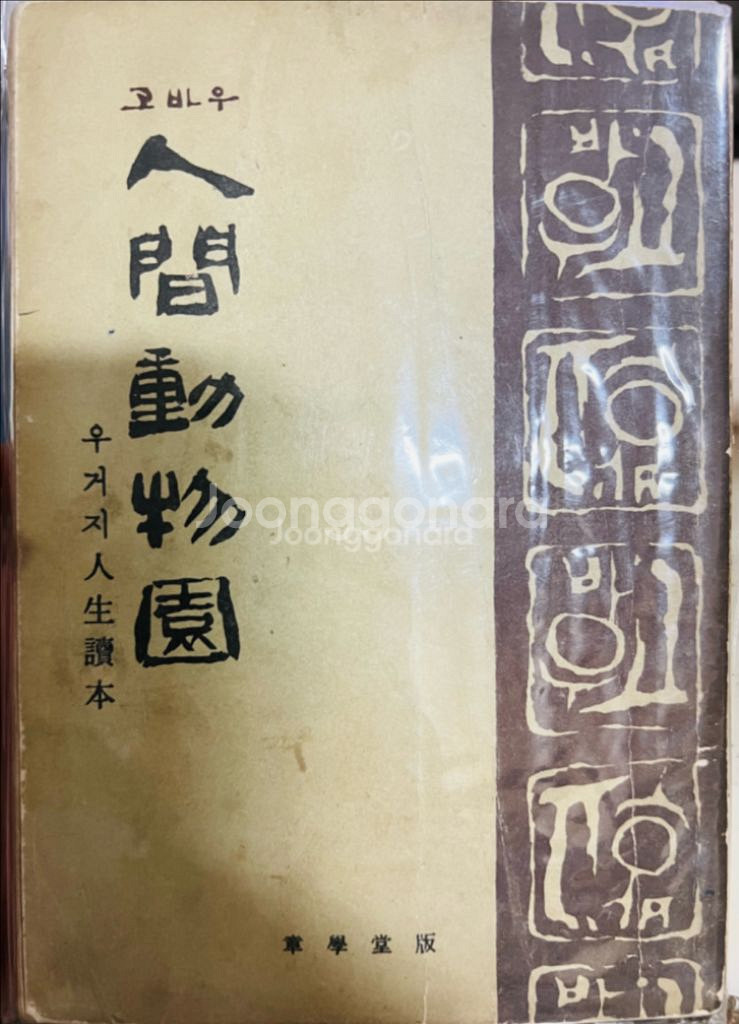 고바우
人間動物園
우거지人生讀本
章學堂版
Joonggonara
Joonggonara